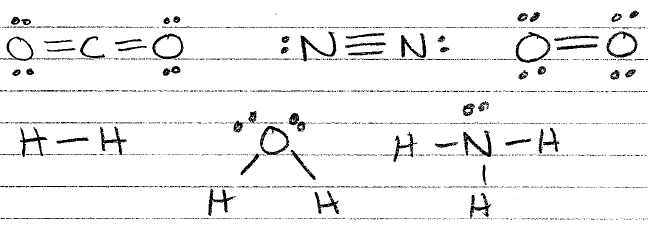 O=C=O :N≡N: O=O
H-H O H-N-H
H H H